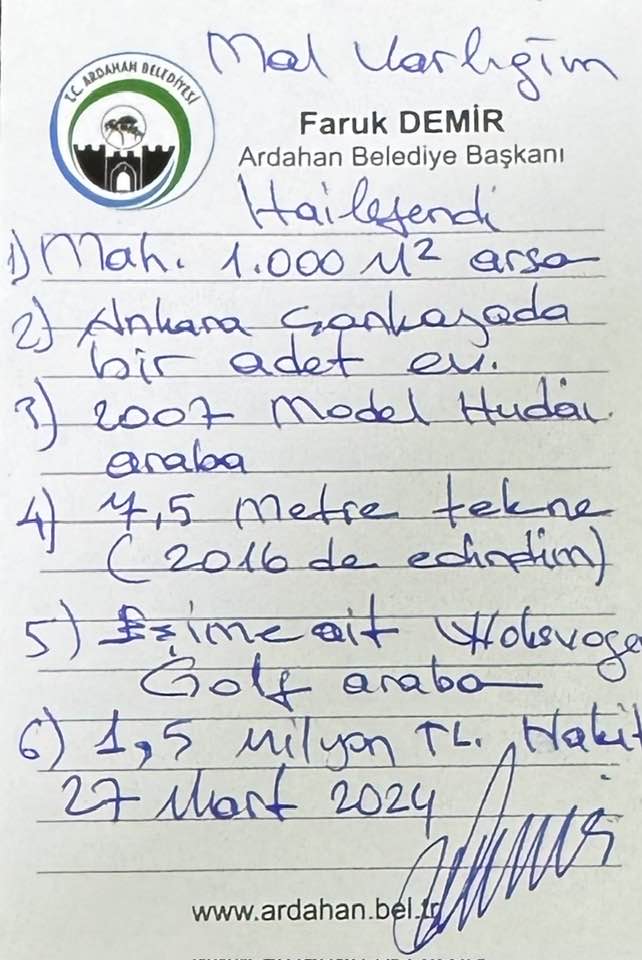 Mal Varlığım
T.C. ARDAHAN BELEDİYESİ
Faruk DEMİR
Ardahan Belediye Başkanı
Halilefendi
1) Mah. 1.000 M² arsa
2) Ankara Çankayada
bir adet ev.
3) 2007 Model Hudâi
araba
4) 7,5 Metre tekne
(2016 da edindim)
5) Eşime ait Wolsvoge
Golf araba
6) 1,5 Milyon TL. Nakit
27 Mart 2024
www.ardahan.bel.tr